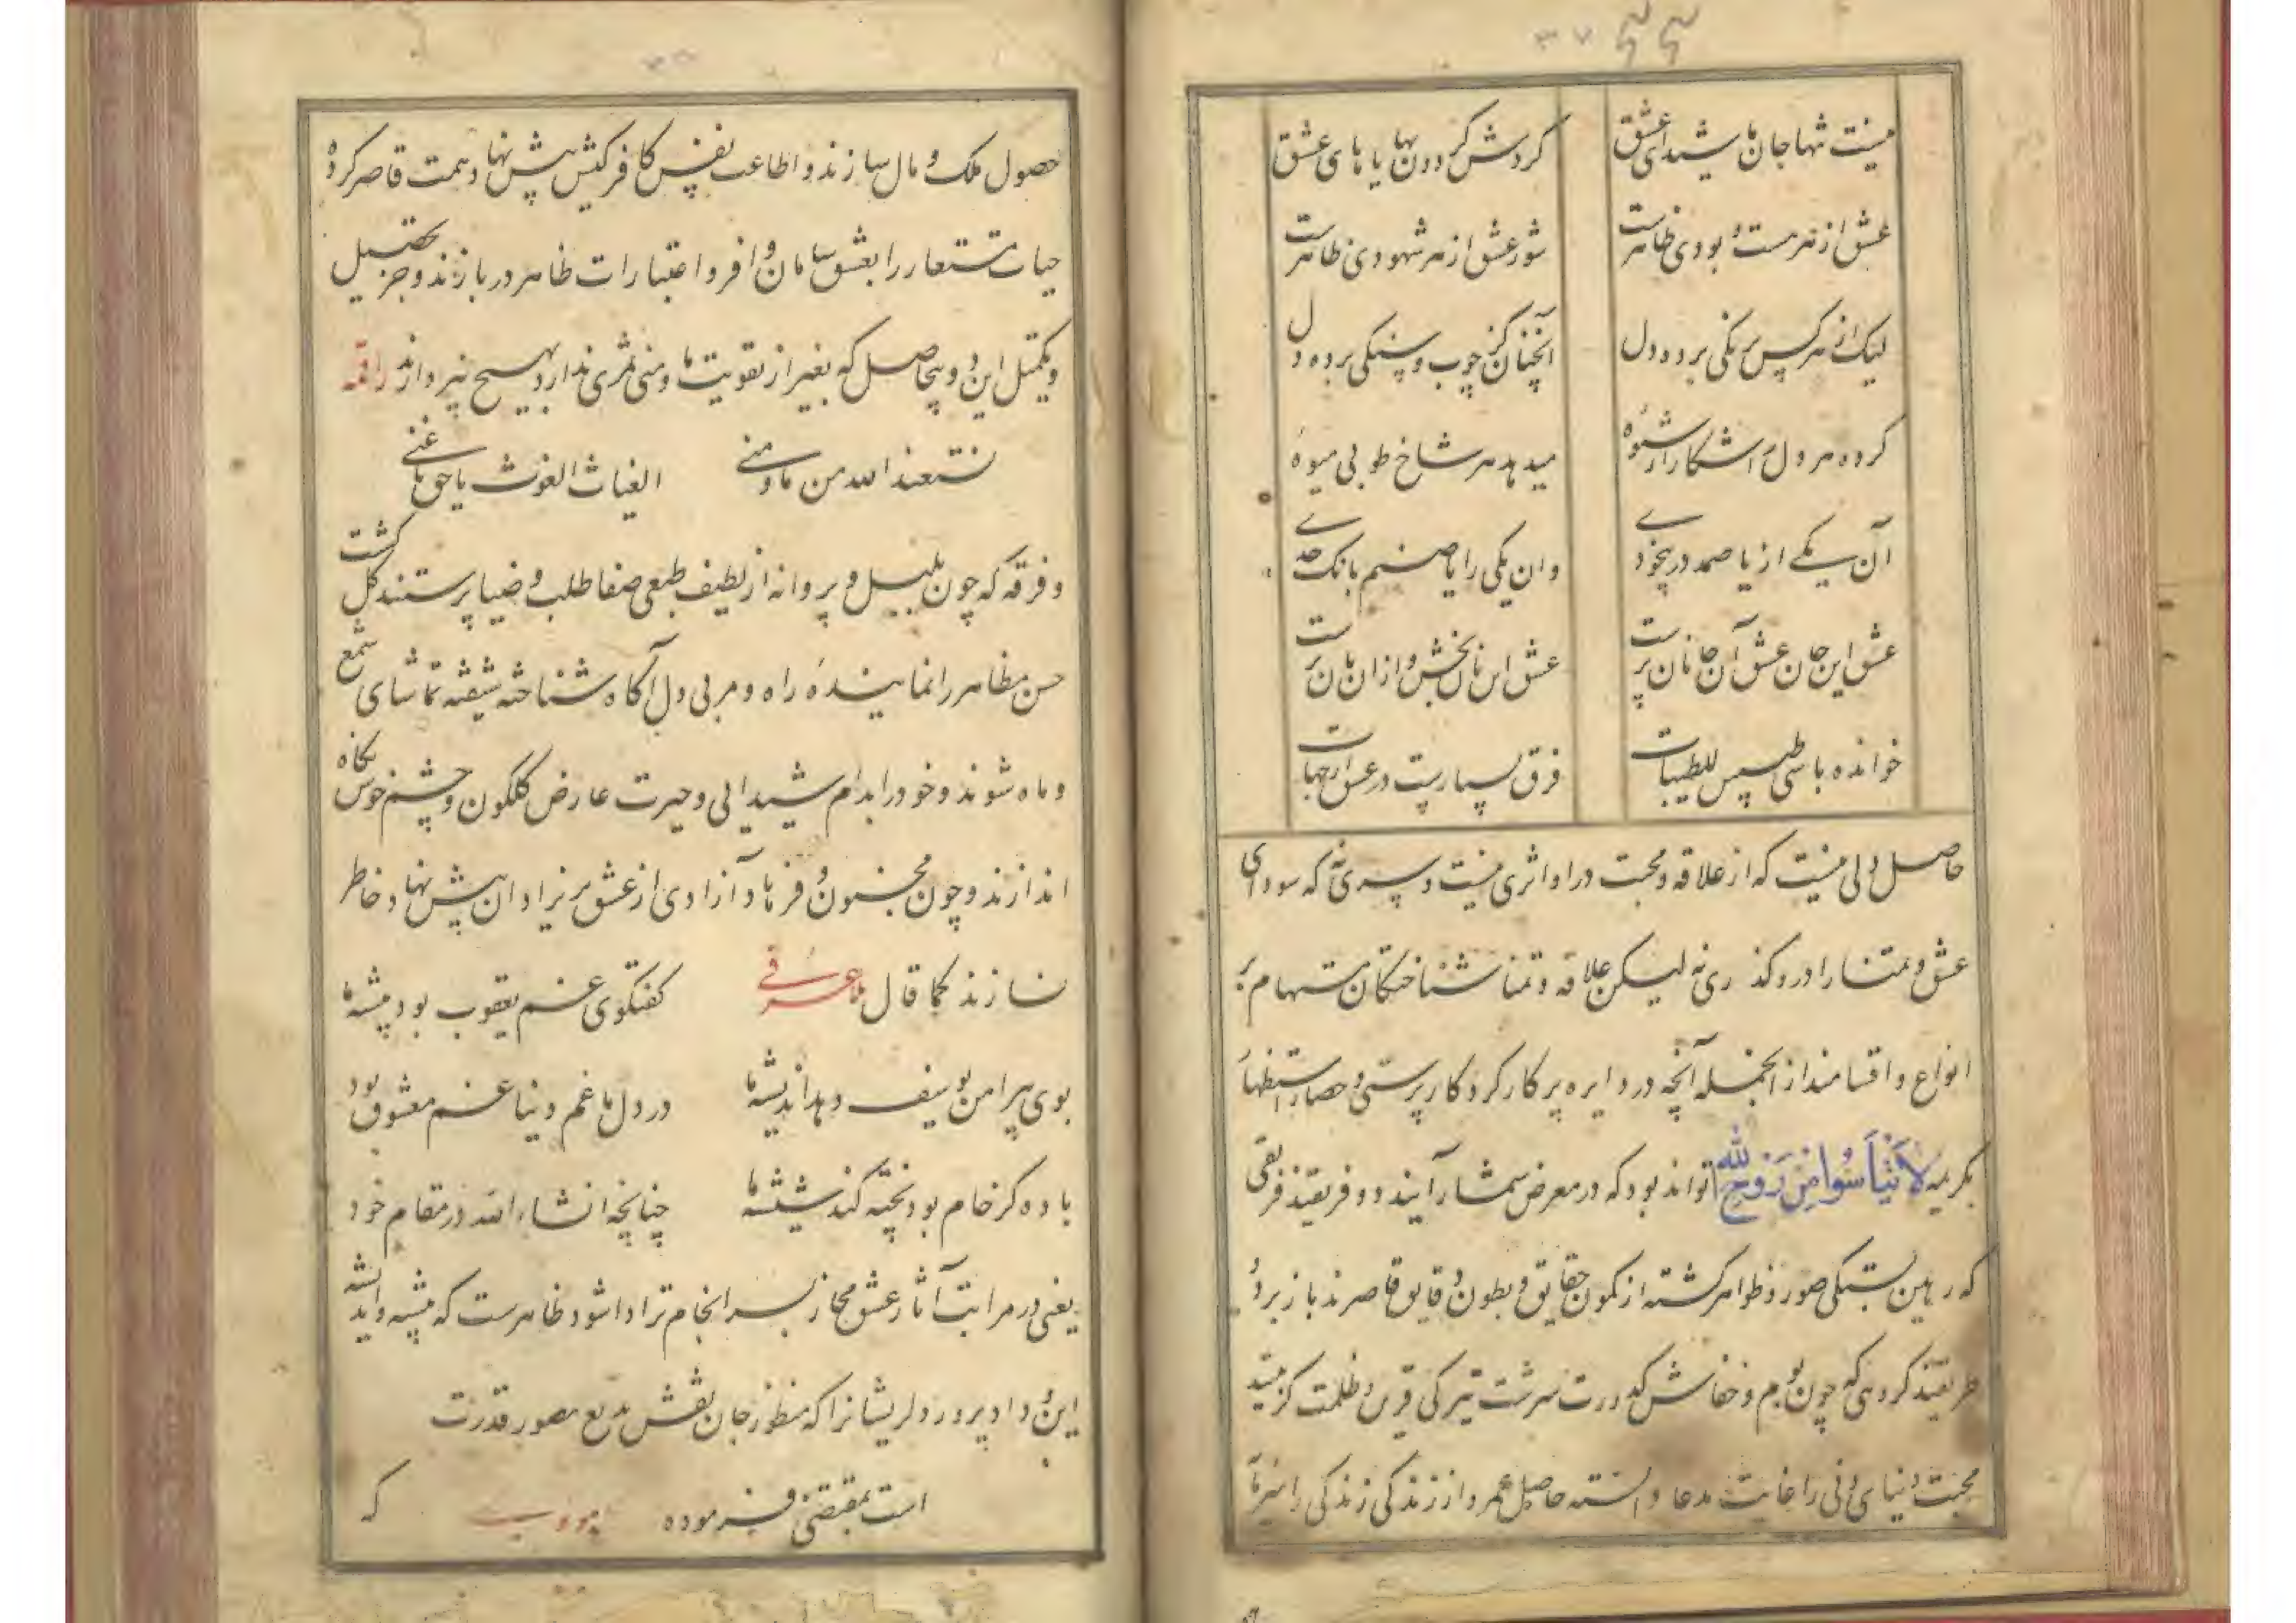 ۳۷
نیست تنها جان ما شیدای عشق
گردش گردون بها یا مای عشق
عشق از هر هست و بودی ظاهرست
شور عشق از هر شهودی ظاهرست
لیک از هر کس برنگی برده دل
آنچنان کز چوب و سنگی برده دل
کرده هر دل آشکارا شیوهٔ
میدهد هر شاخ طوبی میوهٔ
آن یکی از یا صمد در بیخودی
وان یکی را یا صنم بانک حدی
عشق این جان عشق آن جانان پرست
عشق این نان بخش و از آن نان برست
خوانده باشی طیبین للطیبات
فرق بسیارست در عشق از جهات
حاصل دلی نیست که از علاقه و محبت در او اثری نیست و سری نه که سودای
عشق و تمنا را در و گذری نه لیکن علاقه و تمنا شناختگان مستهام بر
انواع و اقسامند از آنجمله آنچه در دایره پرکار کردکار پرستی و حصار استظهار
بکریمه لا تیأسوا من روح الله تواند بود که در معرض شمار آیند دو فریقند فریقی
که رهین بستگی صور و ظواهر گشته از کمون حقایق و بطون دقایق قاصرند باز بر دو
طریقند گروهی که چون بوم و خفاش کدورت سرشت تیرگی قرین و ظلمت گزینند
محبت دنیای دنی را غایت مدعا دانسته حاصل عمر و از زندگی زندگی را سرمایه
حصول ملک و مال سازند و اطاعت نفس کافر کیش پیش نهاد همت قاصر کرده
حیات مستعار را بعشق سامان وافر و اعتبارات ظاهر دربازند و جز تحصیل
و تکمیل این دو بیحاصل که بغیر از تقویت ما و منی ثمری ندارد بهیچ نپردازند راقمه
نستعیذ الله من ما و منی
الغیاث الغوث یا حق یا غنی
و فرقه که چون بلبل و پروانه از لطیف طبعی صفا طلب و ضیا پرستند گل گشت
حسن مظاهر را نمایندهٔ راه و مربی دل آگاه شناخته شیفته تماشای شمع
و ماه شوند و خود را بدام شیدایی و حیرت عارض گلگون و چشم خوش نگاه
اندازند و چون مجنون و فرهاد آزادی از عشق پریزادان پیش نهاد خاطر
نسازند کما قال ملا عرفی
گفتگوی غم یعقوب بود پیشه ما
بوی پیراهن یوسف دهد اندیشه ما
در دل ما غم دنیا غم معشوق بود
باده گر خام بود پخته کند شیشه ما
چنانچه انشاء الله در مقام خود
یعنی در مراتب آثار عشق مجاز بسرانجام تر ادا شود ظاهرست که پیشه و اندیشه
این داد پرور دلریشان را که منظور جان نقش بدیع مصور قدرت
است بمقتضی فرموده
که